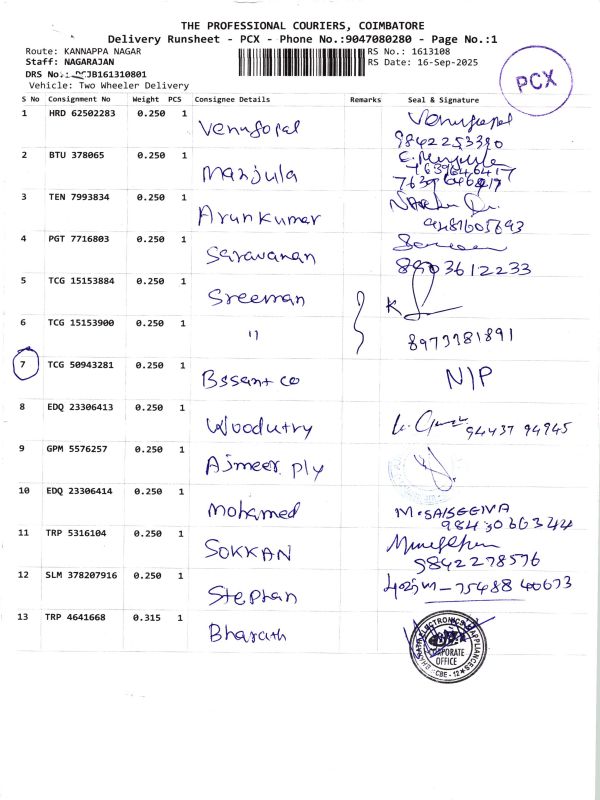 THE PROFESSIONAL COURIERS, COIMBATORE
Delivery Runsheet - PCX - Phone No.:9047080280 - Page No.:1
Route: KANNAPPA NAGAR
RS No.: 1613108
Staff: NAGARAJAN
RS Date: 16-Sep-2025
DRS No.: JB161310801
PCX
Vehicle: Two Wheeler Delivery
S No Consignment No Weight PCS Consignee Details Remarks Seal & Signature
1 HRD 62502283 0.250 1 Venugopal Venugopal
9842253390
2 BTU 378065 0.250 1 Manjula
7639646417
3 TEN 7993834 0.250 1 Arunkumar
9487605693
4 PGT 7716803 0.250 1 Saravanan
8903612233
5 TCG 15153884 0.250 1 Sreeman
6 TCG 15153900 0.250 1 "
8973781891
7 TCG 50943281 0.250 1 Bssant co N/P
8 EDQ 23306413 0.250 1 Woodutry 94437 94945
9 GPM 5576257 0.250 1 Ajmeer ply
10 EDQ 23306414 0.250 1 Mohamed
11 TRP 5316104 0.250 1 SOKKAN
9842278576
12 SLM 378207916 0.250 1 Stephan 75488 40673
13 TRP 4641668 0.315 1 Bharath
ELECTRONICS & APPLIANCES
CORPORATE
OFFICE
CBE - 12